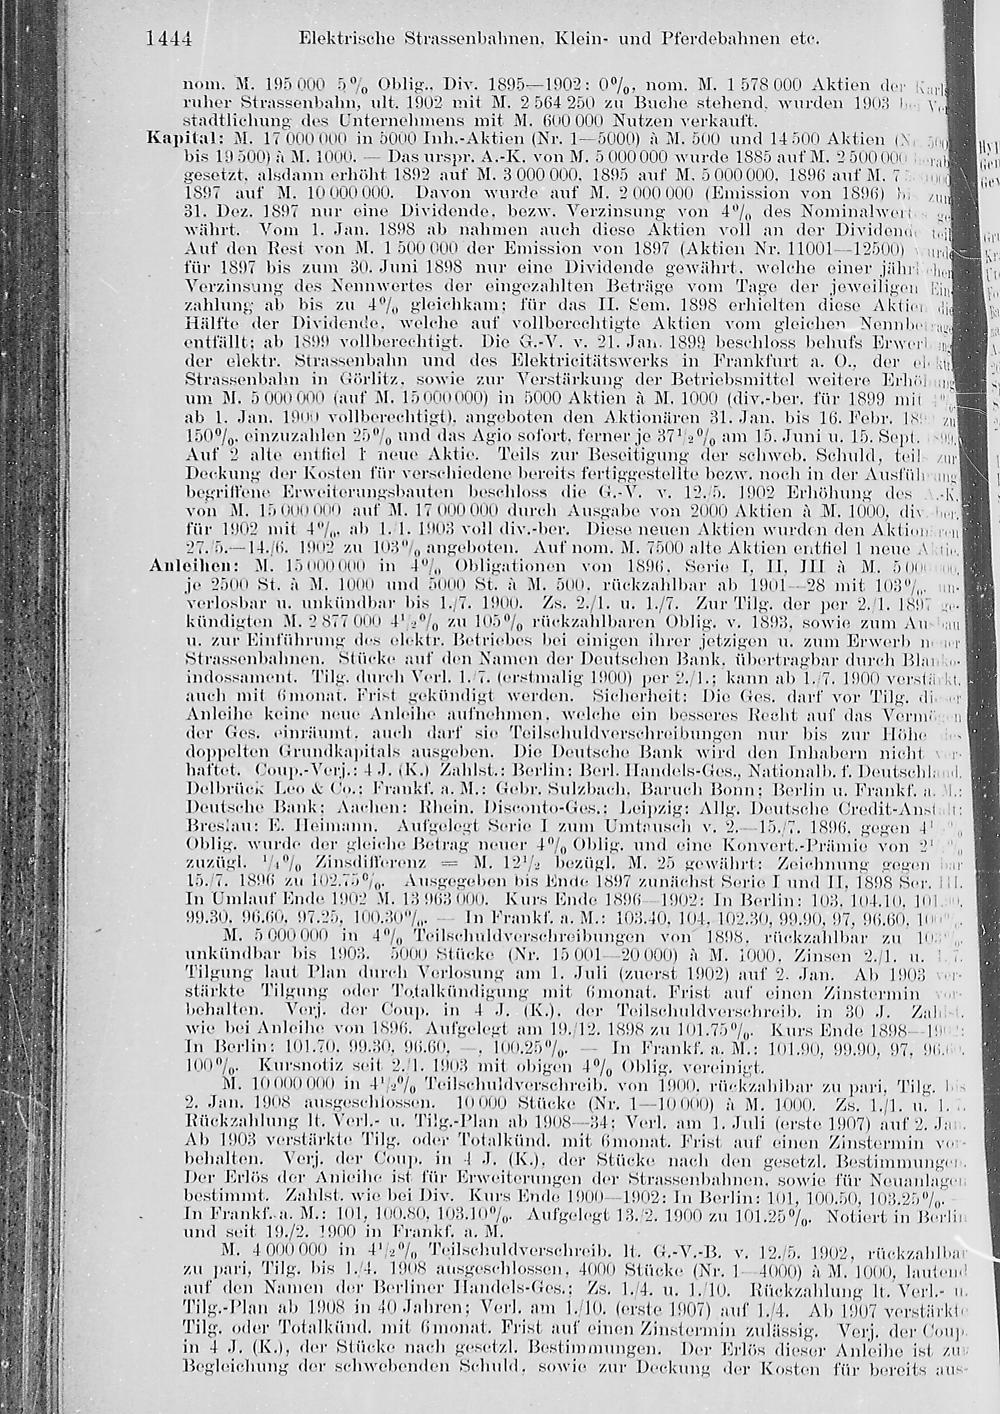 1444 Elektrische Strassenbahnen, Klein- und Pferdebahnen etc.
nom. M. 195 000 5% Oblig., Div. 1895—1902: 0%, nom. M. 1 578 000 Aktien der Karls-
ruher Strassenbahn, ult. 1902 mit M. 2 564 250 zu Buche stehend, wurden 1903 bei Ver-
stadtlichung des Unternehmens mit M. 600 000 Nutzen verkauft.
Kapital: M. 17 000 000 in 5000 Inh.-Aktien (Nr. 1—5000) à M. 500 und 14 500 Aktien (Nr. 5001
bis 19 500) à M. 1000. — Das urspr. A.-K. von M. 5 000 000 wurde 1885 auf M. 2 500 000 herab-
gesetzt, alsdann erhöht 1892 auf M. 3 000 000, 1895 auf M. 5 000 000, 1896 auf M.
1897 auf M. 10 000 000. Davon wurde auf M. 2 000 000 (Emission von 1896) bis zum
31. Dez. 1897 nur eine Dividende, bezw. Verzinsung von 4% des Nominalwertes ge-
währt. Vom 1. Jan. 1898 ab nahmen auch diese Aktien voll an der Dividende teil
Auf den Rest von M. 1 500 000 der Emission von 1897 (Aktien Nr. 11001—12500) wurde
für 1897 bis zum 30. Juni 1898 nur eine Dividende gewährt, welche einer jährlichen
Verzinsung des Nennwertes der eingezahlten Beträge vom Tage der jeweiligen Ein-
zahlung ab bis zu 4% gleichkam; für das II. Sem. 1898 erhielten diese Aktien die
Hälfte der Dividende, welche auf vollberechtigte Aktien vom gleichen Nennbetrage
entfällt; ab 1899 vollberechtigt. Die G.-V. v. 21. Jan. 1899 beschloss behufs Erwerbung
der elektr. Strassenbahn und des Elektricitätswerks in Frankfurt a. O., der elektr.
Strassenbahn in Görlitz, sowie zur Verstärkung der Betriebsmittel weitere Erhöhung
um M. 5 000 000 (auf M. 15 000 000) in 5000 Aktien à M. 1000 (div.-ber. für 1899 mit 4%
ab 1. Jan. 1900 vollberechtigt), angeboten den Aktionären 31. Jan. bis 16. Febr. 1899 zu
150%, einzuzahlen 25% und das Agio sofort, ferner je 37½% am 15. Juni u. 15. Sept. 1899.
Auf 2 alte entfiel 1 neue Aktie. Teils zur Beseitigung der schweb. Schuld, teils zur
Deckung der Kosten für verschiedene bereits fertiggestellte bezw. noch in der Ausführung
begriffene Erweiterungsbauten beschloss die G.-V. v. 12./5. 1902 Erhöhung des A.-K.
von M. 15 000 000 auf M. 17 000 000 durch Ausgabe von 2000 Aktien à M. 1000, div.-ber.
für 1902 mit 4%, ab 1./1. 1903 voll div.-ber. Diese neuen Aktien wurden den Aktionären
27./5.—14./6. 1902 zu 103% angeboten. Auf nom. M. 7500 alte Aktien entfiel 1 neue Aktie.
Anleihen: M. 15 000 000 in 4% Obligationen von 1896, Serie I, II, III à M. 5 000 000,
je 2500 St. à M. 1000 und 5000 St. à M. 500, rückzahlbar ab 1901—28 mit 103%, un-
verlosbar u. unkündbar bis 1./7. 1900. Zs. 2./1. u. 1./7. Zur Tilg. der per 2./1. 1897 ge-
kündigten M. 2 877 000 4½% zu 105% rückzahlbaren Oblig. v. 1893, sowie zum Ausbau
u. zur Einführung des elektr. Betriebes bei einigen ihrer jetzigen u. zum Erwerb neuer
Strassenbahnen. Stücke auf den Namen der Deutschen Bank, übertragbar durch Blanko-
indossament. Tilg. durch Verl. 1./7. (erstmalig 1900) per 2./1.; kann ab 1./7. 1900 verstärkt,
auch mit 6monat. Frist gekündigt werden. Sicherheit: Die Ges. darf vor Tilg. dieser
Anleihe keine neue Anleihe aufnehmen, welche ein besseres Recht auf das Vermögen
der Ges. einräumt, auch darf sie Teilschuldverschreibungen nur bis zur Höhe des
doppelten Grundkapitals ausgeben. Die Deutsche Bank wird den Inhabern nicht ver-
haftet. Coup.-Verj.: 4 J. (K.) Zahlst.: Berlin: Berl. Handels-Ges., Nationalb. f. Deutschland,
Delbrück Leo & Co.; Frankf. a. M.: Gebr. Sulzbach, Baruch Bonn; Berlin u. Frankf. a. M.:
Deutsche Bank; Aachen: Rhein. Disconto-Ges.; Leipzig: Allg. Deutsche Credit-Anstalt;
Breslau: E. Heimann. Aufgelegt Serie I zum Umtausch v. 2.—15./7. 1896, gegen
Oblig. wurde der gleiche Betrag neuer 4% Oblig. und eine Konvert.-Prämie von
zuzügl. ¼% Zinsdifferenz = M. 12½ bezügl. M. 25 gewährt; Zeichnung gegen bar
15./7. 1896 zu 102.75%. Ausgegeben bis Ende 1897 zunächst Serie I und II, 1898 Ser. III.
In Umlauf Ende 1902 M. 13 963 000. Kurs Ende 1896—1902: In Berlin: 103, 104.10,
99.30, 96.60, 97.25, 100.30%. — In Frankf. a. M.: 103.40, 104, 102.30, 99.90, 97, 96.60,
M. 5 000 000 in 4% Teilschuldverschreibungen von 1898, rückzahlbar zu 103%,
unkündbar bis 1903. 5000 Stücke (Nr. 15 001—20 000) à M. 1000, Zinsen 2./1. u. 1./7.
Tilgung laut Plan durch Verlosung am 1. Juli (zuerst 1902) auf 2. Jan. Ab 1903 ver-
stärkte Tilgung oder Totalkündigung mit 6monat. Frist auf einen Zinstermin vor-
behalten. Verj. der Coup. in 4 J. (K.), der Teilschuldverschreib. in 30 J. Zahlst.
wie bei Anleihe von 1896. Aufgelegt am 19./12. 1898 zu 101.75%. Kurs Ende 1898—1902:
In Berlin: 101.70, 99.30, 96.60, —, 100.25%. — In Frankf. a. M.: 101.90, 99.90, 97, 96.60,
100%. Kursnotiz seit 2./1. 1903 mit obigen 4% Oblig. vereinigt.
M. 10 000 000 in 4½% Teilschuldverschreib. von 1900, rückzahlbar zu pari, Tilg. bis
2. Jan. 1908 ausgeschlossen. 10 000 Stücke (Nr. 1—10 000) à M. 1000. Zs. 1./1. u. 1./7.
Rückzahlung lt. Verl.- u. Tilg.-Plan ab 1908—34; Verl. am 1. Juli (erste 1907) auf 2. Jan.
Ab 1903 verstärkte Tilg. oder Totalkünd. mit 6monat. Frist auf einen Zinstermin vor-
behalten. Verj. der Coup. in 4 J. (K.), der Stücke nach den gesetzl. Bestimmungen.
Der Erlös der Anleihe ist für Erweiterungen der Strassenbahnen, sowie für Neuanlagen
bestimmt. Zahlst. wie bei Div. Kurs Ende 1900—1902: In Berlin: 101, 100.50, 103.25%. —
In Frankf. a. M.: 101, 100.80, 103.10%. Aufgelegt 13./2. 1900 zu 101.25%. Notiert in Berlin
und seit 19./2. 1900 in Frankf. a. M.
M. 4 000 000 in 4½% Teilschuldverschreib. lt. G.-V.-B. v. 12./5. 1902, rückzahlbar
zu pari, Tilg. bis 1./4. 1908 ausgeschlossen, 4000 Stücke (Nr. 1—4000) à M. 1000, lautend
auf den Namen der Berliner Handels-Ges.; Zs. 1./4. u. 1./10. Rückzahlung lt. Verl.- u.
Tilg.-Plan ab 1908 in 40 Jahren; Verl. am 1./10. (erste 1907) auf 1./4. Ab 1907 verstärkte
Tilg. oder Totalkünd. mit 6monat. Frist auf einen Zinstermin zulässig. Verj. der Coup.
in 4 J. (K.), der Stücke nach gesetzl. Bestimmungen. Der Erlös dieser Anleihe ist zur
Begleichung der schwebenden Schuld, sowie zur Deckung der Kosten für bereits aus-